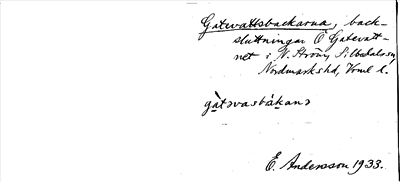 Gatevattsbackarna, back-
sluttningar Ö Gatevatt-
net i N. Ström, Silbodals sn,
Nordmarks hd, Vrml l.
gàtǝvasbàkanǝ
E. Andersson 1933.